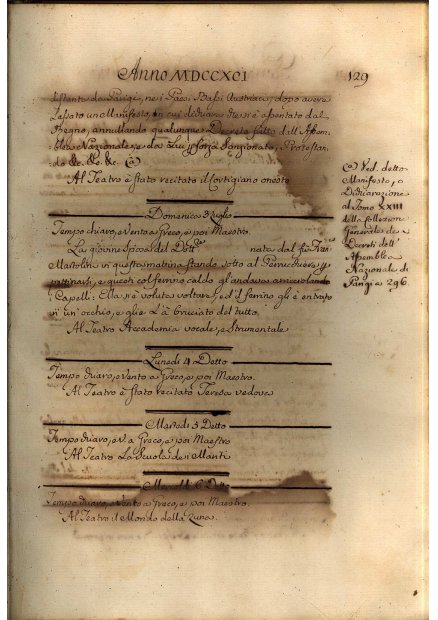 Anno MDCCXCI
129
distante da Parigi, nei Paesi Bassi Austriaci, dopo avere
lassato un Manifesto, in cui dichiara che si è apentato dal
Regno, annullando qualunque Decreto fatto dall' Assem-
blea Nazionale, e da Lui per forza sanzionato, Protestan-
do &c. &c. &c. (a)
Al Teatro è stato recitato il Cortigiano onesto
(a) Ved. detto
Manifesto, o
Dichiarazione
al Tomo XXIII
della Collezione
Generale de
Decreti dell'
Assemblea
Nazionale di
Parigi a 296.
Domenica 3 Luglio
Tempo chiaro, e Vento a Greco, e poi Maestro.
La giovine Sposa del Dott.re nata dal fu Fran.co
Martolini in questa mattina stando sotto al Perrucchiere a
pettinarsi, e questi col ferrino caldo gl'andava arricciolando
Capelli: Ella s'è voluta voltare, ed il ferrino gli è entrato
in un'occhio, e glie l'à bruciato del tutto.
Al Teatro Accademia vocale, e Strumentale
Lunedì 4 Detto
Tempo chiaro, e Vento a Greco, e poi Maestro.
Al Teatro è stato recitato Teresa vedova
Martedì 5 Detto
Tempo chiaro, e V. a Greco, e poi Maestro
Al Teatro La Scuola dei Mariti
Mercoledì 6 Detto
Tempo chiaro, e Vento a Greco, e poi Maestro.
Al Teatro il Mondo della Luna.